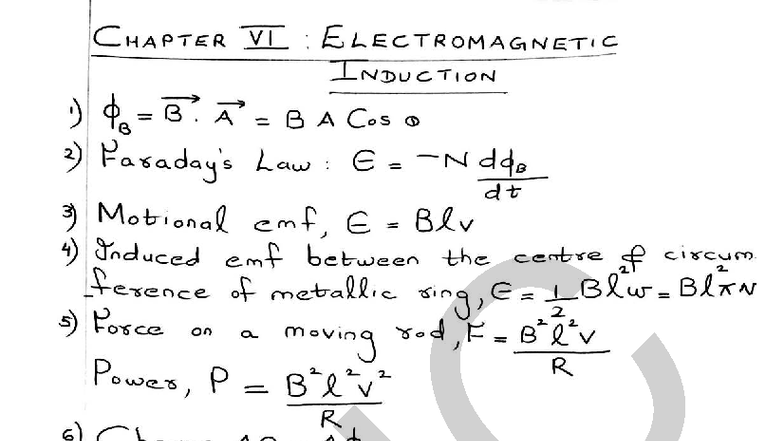 CHAPTER VI : ELECTROMAGNETIC
INDUCTION
1) ϕ_B = B⃗ . A⃗ = B A Cos θ
2) Faraday's Law : Є = -N dϕ_B/dt
3) Motional emf, Є = Blv
4) Induced emf between the centre & circum
ference of metallic ring, Є = 1/2 Bl²w = Bl²πN
5) Force on a moving rod, F = B²l²v/R
Power, P = B²l²v²/R
6)